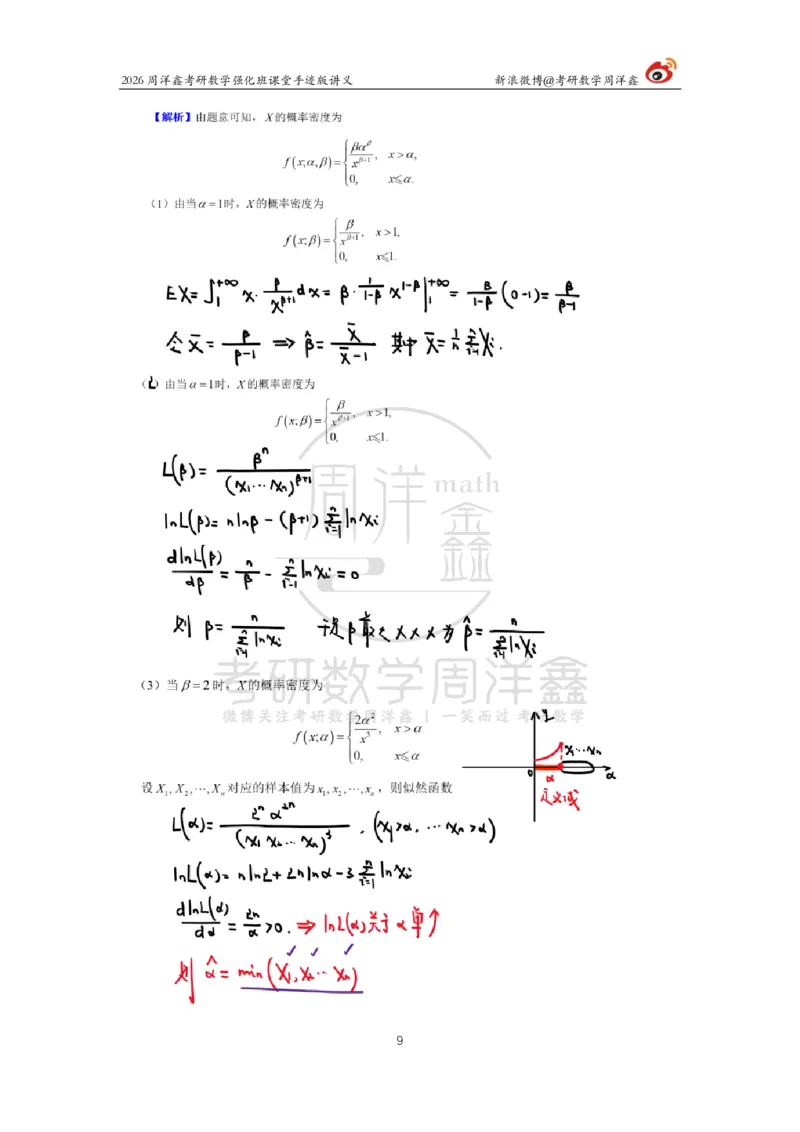 2026周洋鑫考研数学强化班课堂手迹版讲义 新浪微博@考研数学周洋鑫
【解析】由题意可知，X的概率密度为
f(x;α,β)={βα^β/x^(β+1), x>α,
0, x≤α.
（1）由当α=1时，X的概率密度为
f(x;β)={β/x^(β+1), x>1,
0, x≤1.
EX=∫₁^{+∞} x·β/x^(β+1) dx=β·1/(1-β) x^(1-β)|₁^{+∞}=β/(1-β)(0-1)=β/(β-1)
令X̄=β/(β-1) ⇒ β̂=X̄/(X̄-1) 其中 X̄=1/n Σ_{i=1}^n Xi.
（2）由当α=1时，X的概率密度为
f(x;β)={β/x^(β+1), x>1,
0, x≤1.
L(β)=β^n/(x₁…xₙ)^(β+1)
lnL(β)=nlnβ-(β+1)Σ_{i=1}^n lnxi
dlnL(β)/dβ=n/β-Σ_{i=1}^n lnxi=0
则 β=n/Σ_{i=1}^n lnxi 于是β最大xxx为 β̂=n/Σ_{i=1}^n lnXi
周洋 math
鑫
考研数学周洋鑫
（3）当β=2时，X的概率密度为
微博关注考研数学周洋鑫 | 一笑而过 考研数学
f(x;α)={2α²/x³, x>α
0, x≤α
L
x₁…xₙ
0 α α
定义域
设X₁,X₂,…,Xₙ对应的样本值为x₁,x₂,…,xₙ，则似然函数
L(α)=2^n α^(2n)/(x₁x₂…xₙ)³, (x₁>α,…xₙ>α)
lnL(α)=nln2+2nlnα-3Σ_{i=1}^n lnxi
dlnL(α)/dα=2n/α>0. ⇒ lnL(α)关于α单↑
则 α̂=min(X₁,X₂…Xₙ)
9